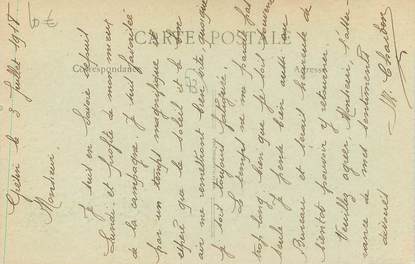 CARTE POSTALE
Correspondance
Adresse
le 3 Juillet 1918
Monsieur.
Je suis en Savoie depuis
Lundi et profite de mon mieux
de la campagne. Je suis favorisée
par un temps magnifique et
espère que le soleil et le bon
air me remettront bien vite quoique
je sois toujours fatiguée.
Le temps ne me paraît pas
trop long bien que je sois
seule. Je pense bien aussi au
Bureau et serais heureuse de
bientôt pouvoir y retourner.
Veuillez agréer, Monsieur, l'assu-
rance de mes sentiments
dévoués
M. Charbon